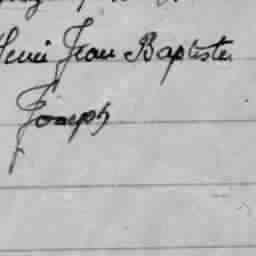 Henri Jean Baptiste
Joseph